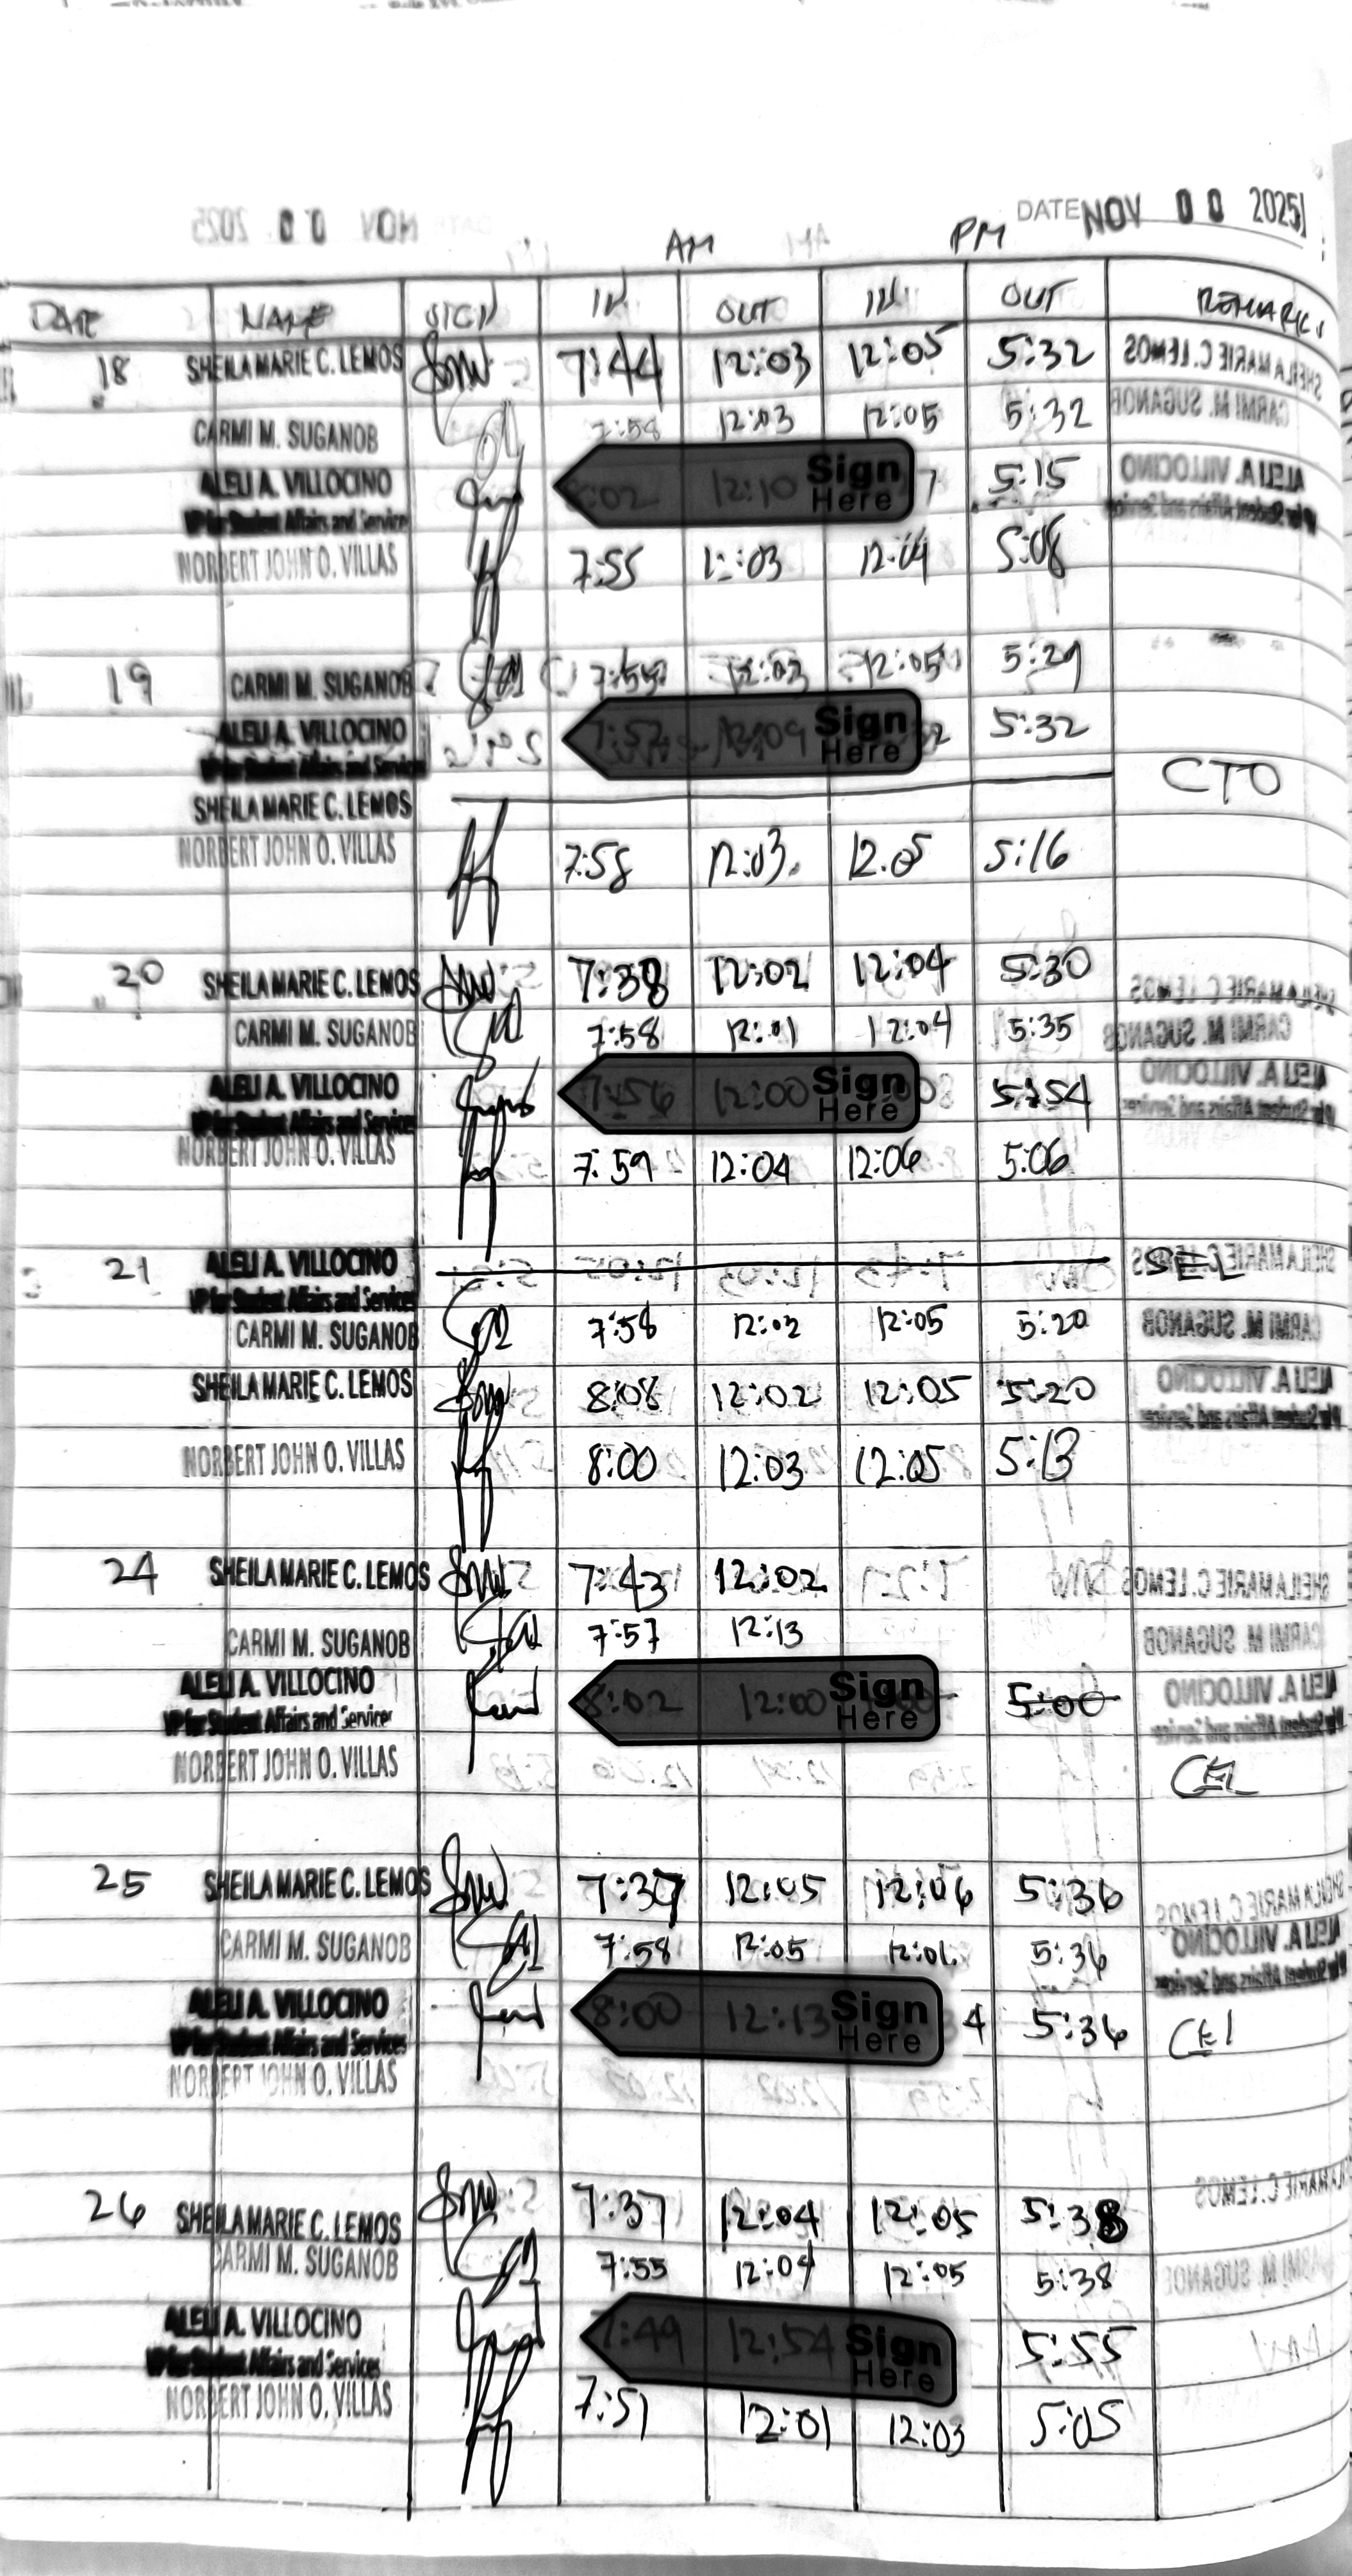 DATE NOV 00 2025
AM PM
DATE NAME SIGN IN OUT IN OUT REMARKS
18 SHEILA MARIE C. LEMOS 7:44 12:03 12:05 5:32
CARMI M. SUGANOB 7:58 12:03 12:05 5:32
ALELI A. VILLOCINO 8:02 12:10 Sign Here 5:15
VP for Student Affairs and Services
NORBERT JOHN O. VILLAS 7:55 12:03 12:04 5:08
19 CARMI M. SUGANOB 12:03 12:05 5:29
ALELI A. VILLOCINO 7:52 12:09 Sign Here 5:32
VP for Student Affairs and Services
SHEILA MARIE C. LEMOS CTO
NORBERT JOHN O. VILLAS 7:58 12:03 12:05 5:16
20 SHEILA MARIE C. LEMOS 7:38 12:02 12:04 5:30
CARMI M. SUGANOB 7:58 12:01 12:04 5:35
ALELI A. VILLOCINO 7:56 12:00 Sign Here 5:54
VP for Student Affairs and Services
NORBERT JOHN O. VILLAS 7:59 12:04 12:06 5:06
21 ALELI A. VILLOCINO SEL
VP for Student Affairs and Services
CARMI M. SUGANOB 7:58 12:02 12:05 5:20
SHEILA MARIE C. LEMOS 8:08 12:02 12:05 5:20
NORBERT JOHN O. VILLAS 8:00 12:03 12:05 5:13
24 SHEILA MARIE C. LEMOS 7:43 12:02
CARMI M. SUGANOB 7:57 12:13
ALELI A. VILLOCINO 8:02 12:00 Sign Here 5:00
VP for Student Affairs and Services
NORBERT JOHN O. VILLAS CEL
25 SHEILA MARIE C. LEMOS 7:37 12:05 12:06 5:36
CARMI M. SUGANOB 7:58 12:05 12:06 5:36
ALELI A. VILLOCINO 8:00 12:13 Sign Here 4 5:36 CEL
VP for Student Affairs and Services
NORBERT JOHN O. VILLAS
26 SHEILA MARIE C. LEMOS 7:37 12:04 12:05 5:38
CARMI M. SUGANOB 7:55 12:04 12:05 5:38
ALELI A. VILLOCINO 7:49 12:54 Sign Here 5:55
VP for Student Affairs and Services
NORBERT JOHN O. VILLAS 7:51 12:01 12:03 5:05